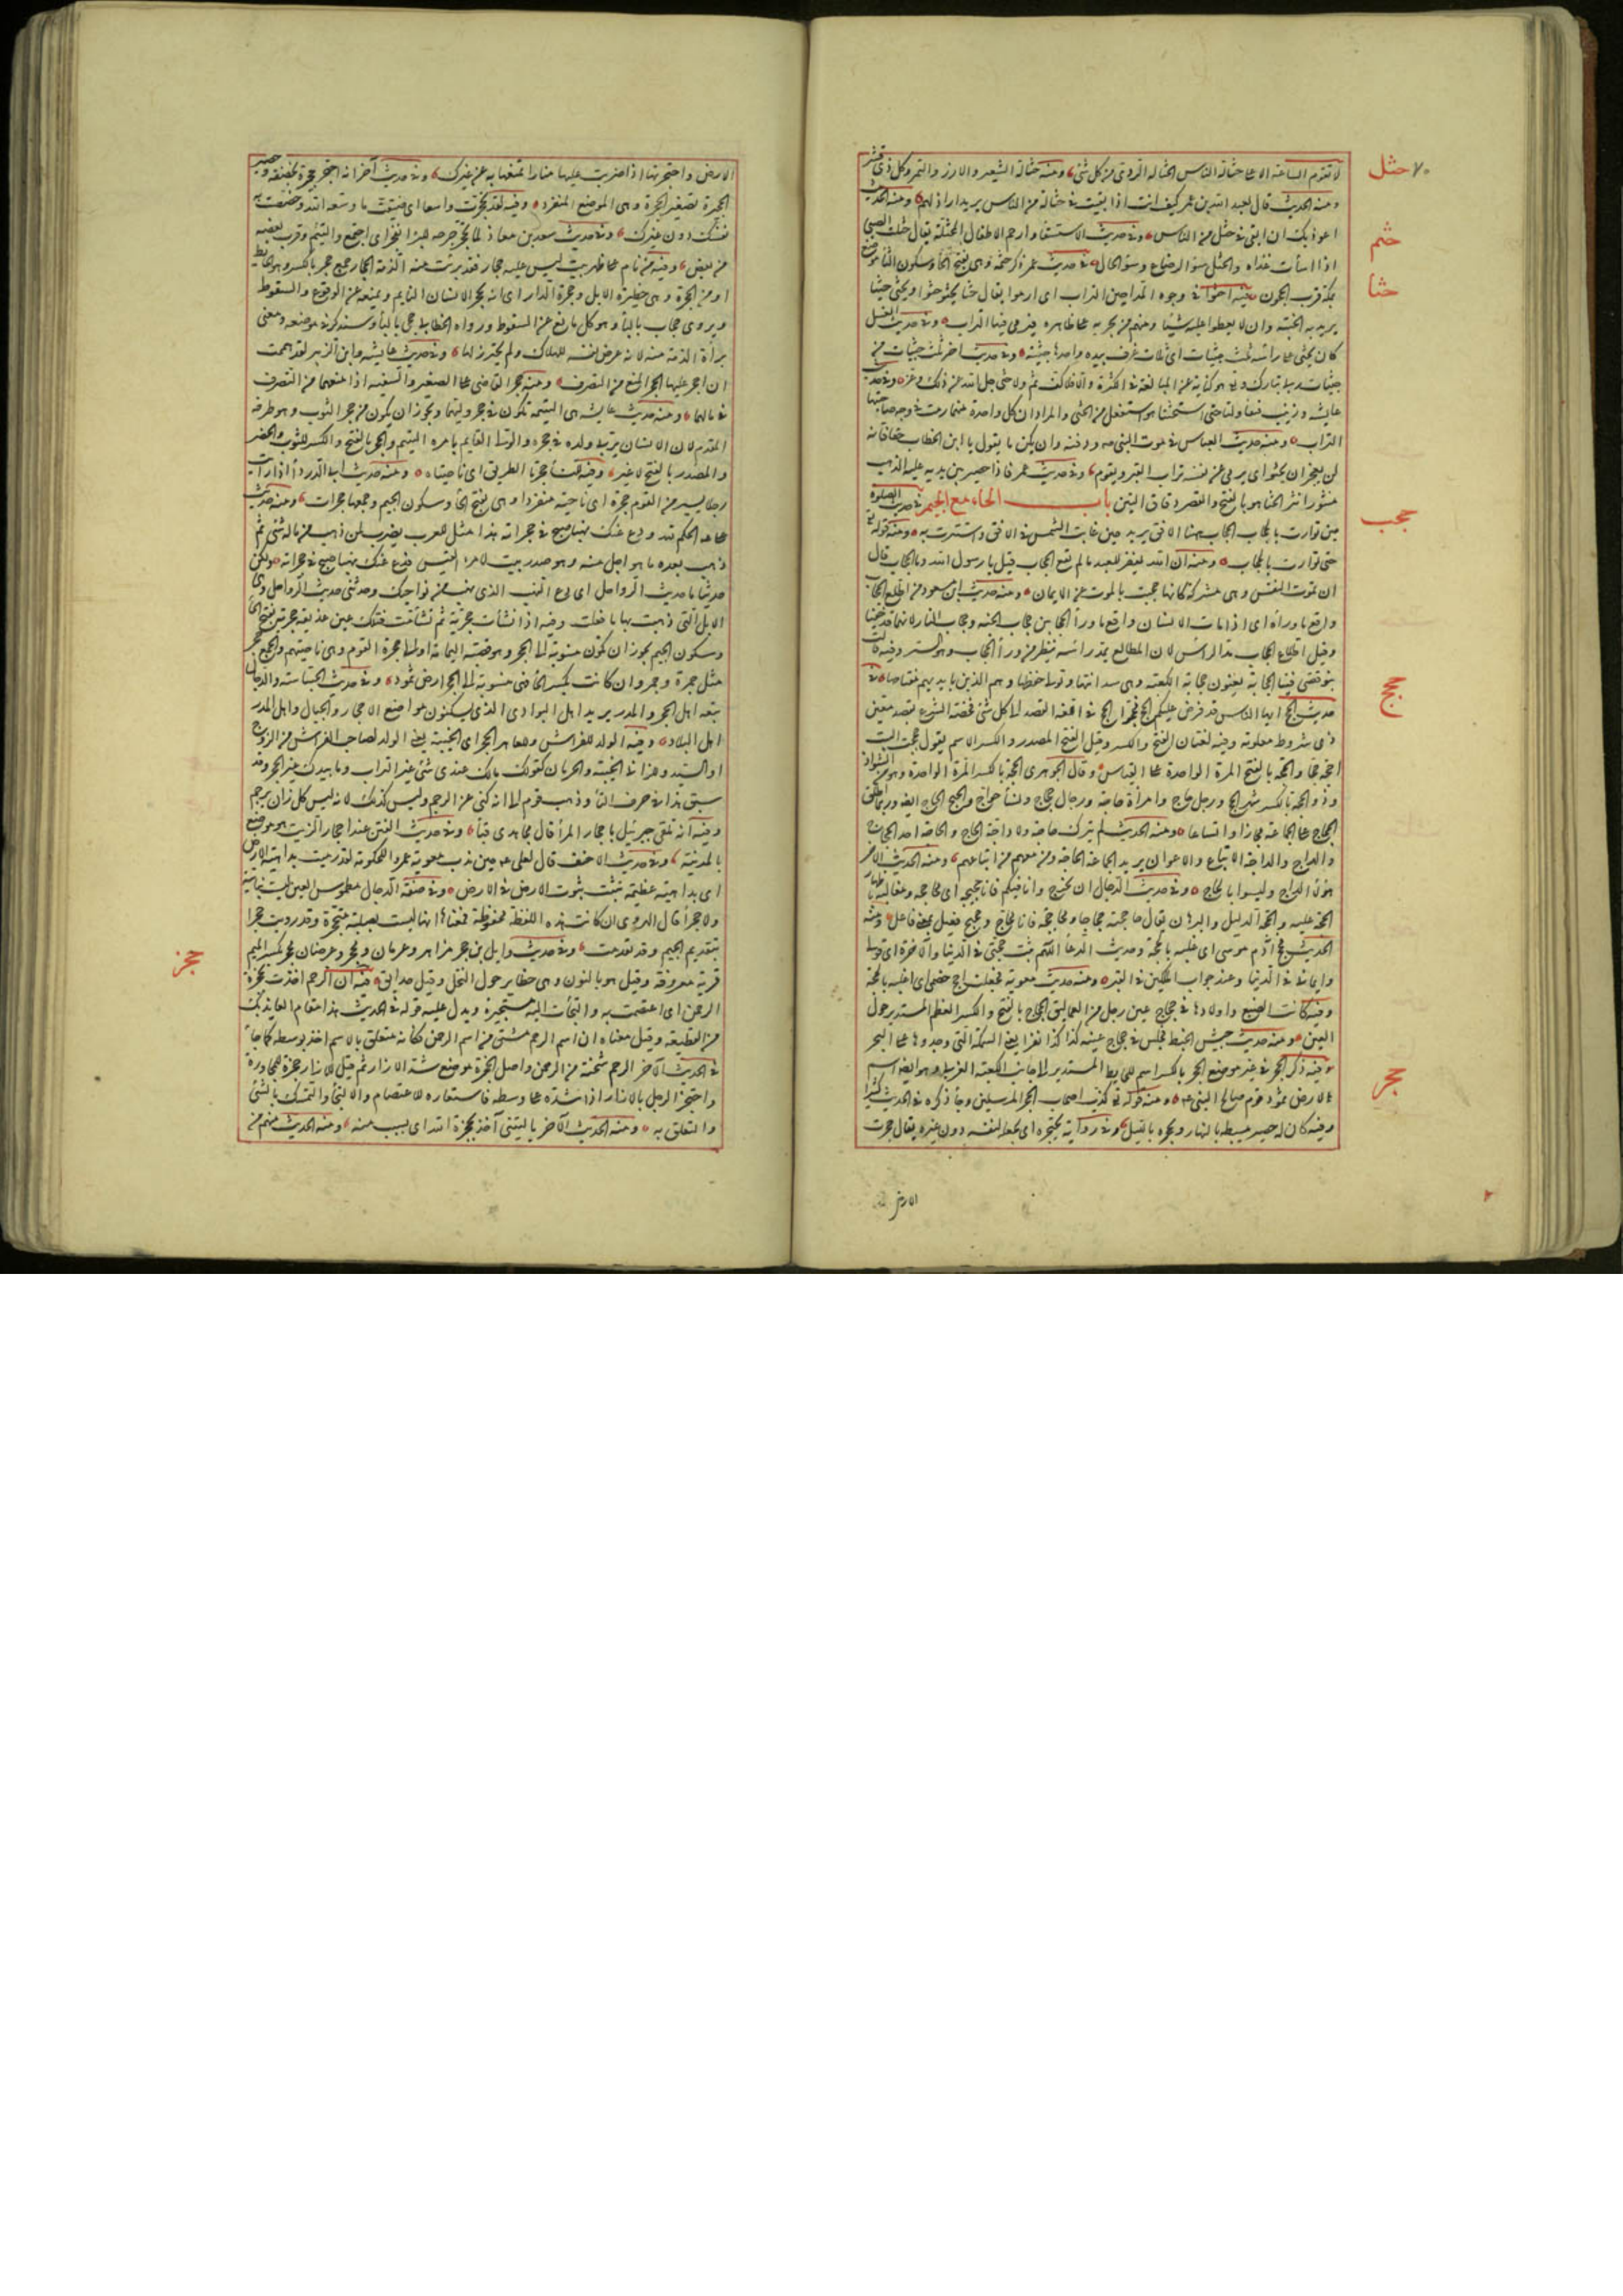 ٧٠ حثل
لا تقوم الساعة الا على حثالة الناس الحثالة الردى من كل شئ ومنه حثالة الشعير والارز والتمر وكل ذى قشر
ومنه الحديث قال لعبد الله بن عمر كيف انت اذا بقيت فى حثالة من الناس يريد اراذلهم ومنه الحديث
اعوذ بك ان ابقى فى حثل من الناس وفى حديث الاستسقا وارحم الاطفال المحثلة يقال احثلت الصبى
حثم
اذا اسأت غذاه والحثل سوء الرضاع وسوء الحال فى حديث عمر ذكر حثمة وهى بفتح الحا وسكون الثا موضع
حثا
بمكة قرب الحجون فيه احثوا فى وجوه المداحين التراب اى ارموا يقال حثا يحثو حثوا ويحثى حثيا
يريد به الخيبة وان لا يعطوا عليه شيئا ومنهم من يجريه على ظاهره فيرمى فيها التراب وفى حديث الغسل
كان يحثى على راسه ثلث حثيات اى ثلاث غرف بيده واحدها حثية وفى حديث اخر ثلث حثيات من
حثيات ربى تبارك وتع هو كناية عن المبالغة فى الكثرة والا فلا كف ثم ولا حثى جل الله عن ذلك وعز وفى حديث
عايشة وزينب فتقاولتا حتى استحثتا هو استفعل من الحثى والمراد ان كل واحدة منهما رمت فى وجه صاحبتها
التراب ومنه حديث العباس فى موت النبى صه ودفنه وان يكن ما يقول يا ابن الخطاب حقا فانه
لن يعجز ان يحثو اى يرمى عن نفسه تراب القبر ويقوم وفى حديث عمر فاذا حصير بين يديه عليه الذهب
منثورا نثر الحثا هو بالفتح والقصر دقاق التبن باب الحاء مع الجيم فى حديث الصلوة
حجب
حين توارت بالحجاب الحجاب ههنا الافق يريد حين غابت الشمس فى الافق واستترت به ومنه قوله تع
حتى توارت بالحجاب ومنه ان الله يغفر للعبد ما لم يقع الحجاب قيل يا رسول الله وما الحجاب قال
ان تموت النفس وهى مشركة كانها حجبت بالموت عن الايمان ومنه حديث ابن مسعود من اطلع الحجاب
واقع ما وراه اى اذا مات الانسان واقع ما ورأ الحجابين حجاب الجنه وحجاب النار لانهما قد خفيا
وقيل اطلاع الحجاب مد الراس لان المطالع يمد راسه ينظر من ورأ الحجاب وهو الستر وفيه قالت
بنو قصى فينا الحجابة يعنون حجابة الكعبة وهى سدانتها وتولى حفظها وهم الذين بايديهم مفتاحها فى
حجج
حديث الحج ايها الناس قد فرض عليكم الحج فحجوا الحج فى اللغة القصد الى كل شئ فخصه الشرع بقصد معين
ذى شروط معلومة وفيه لغتان الفتح والكسر وقيل الفتح المصدر والكسر الاسم يقول حججت البيت
احجه حجا والحجة بالفتح المرة الواحدة على القياس وقال الجوهرى الحجة بالكسر المرة الواحدة وهو من الشواذ
وذو الحجة بالكسر شهر الحج ورجل حاج وامرأة حاجة ورجال حجاج ونسأ حواج والحجيج الحجاج ايضا وربما اطلق
الحاج على الجماعة مجازا واتساعا ومنه الحديث لم يترك حاجة ولا داجة الحاج والحاجة احد الحجاج
والداج والداجة الاتباع والاعوان يريد الجماعة الحاجة ومن معهم من اتباعهم ومنه الحديث الاخر
هولا الداج وليسوا بالحاج وفى حديث الدجال ان يخرج وانا فيكم فانا حجيجه اى محاججه ومغالبه باظهار
الحجة عليه والحجة الدليل والبرهان يقال حاججته حجاجا ومحاجة فانا محاج وحجيج فعيل بمعنى فاعل ومنه
الحديث فحج آدم موسى اى غلبه بالحجة وحديث الدعأ اللهم ثبت حجتى فى الدنيا والآخرة اى قولى
وايمانى فى الدنيا وعند جواب الملكين فى القبر ومنه حديث معوية فجعلت احج خصمى اى اغلبه بالحجة
وفيه كانت الضبع واولادها فى حجاج عين رجل من العماليق الحجاج بالفتح والكسر العظم المستدير حول
العين ومنه حديث جيش الخبط فجلس فى حجاج عينه كذا كذا نفرا يعنى السمكة التى وجدوها على البحر
حجر
فيه ذكر الحجر فى غير موضع الحجر بالكسر اسم للحايط المستدير الى جانب الكعبة الغربى وهو ايضا اسم
لارض ثمود قوم صالح النبى عه ومنه قوله تع كذب اصحاب الحجر المرسلين وجأ ذكره فى الحديث كثيرا
وفيه كان له حصير يبسطه بالنهار ويحجره بالليل وفى رواية يحتجره اى يجعله لنفسه دون غيره يقال حجرت
الارض
الارض واحتجرتها اذا ضربت عليها منارا تمنعها به عن غيرك وفى حديث آخر انه احتجر حجيرة بخصفة او حصير
الحجيرة تصغير الحجرة وهى الموضع المنفرد وفيه لقد تحجرت واسعا اى ضيقت ما وسعه الله وخصصت به
نفسك دون غيرك وفى حديث سعد بن معاذ لما تحجر جرحه للبرأ انفجر اى اجتمع والتأم وقرب بعضه
من بعض وفيه من نام على ظهر بيت ليس عليه حجار فقد برئت منه الذمة الحجار جمع حجر بالكسر وهو الحايط
او من الحجرة وهى حظيرة الابل وحجرة الدار اى انه يحجر الانسان النايم ويمنعه عن الوقوع والسقوط
ويروى حجاب بالبأ وهو كل مانع عن السقوط ورواه الخطابى حجى باليأ وسنذكره فى موضعه ومعنى
برأة الذمة منه لانه عرض نفسه للهلاك ولم يحترز لها وفى حديث عايشة وابن الزبير لقد هممت
ان احجر عليها الحجر المنع من التصرف ومنه حجر القاضى على الصغير والسفيه اذا منعهما من التصرف
فى مالهما ومنه حديث عايشة هى اليتيمة تكون فى حجر وليها ويجوز ان يكون من حجر الثوب وهو طرفه
المقدم لان الانسان يربى ولده فى حجره والولى القايم بامر اليتيم والحجر بالفتح والكسر للثوب والحضن
والمصدر بالفتح لا غير وفيه للنسأ حجرتا الطريق اى ناحيتاه ومنه حديث ابى الدردأ اذا رأيت
رجلا يسير من القوم حجرة اى ناحية منفردا وهى بفتح الحأ وسكون الجيم وجمعها حجرات ومنه حديث
على عه الحكم لله ودع عنك نهبا صيح فى حجراته هذا مثل للعرب يضرب لمن ذهب من ماله شئ ثم
ذهب بعده ما هو اجل منه وهو صدر بيت لامرء القيس فدع عنك نهبا صيح فى حجراته ولكن
حديثا ما حديث الرواحل اى دع النهب الذى نهب من نواحيك وحدثنى حديث الرواحل وهى
الابل التى ذهبت بها ما فعلت وفيه اذا نشأت حجرية ثم تشأمت فتلك عين غديقة حجرية بفتح الحأ
وسكون الجيم يجوز ان تكون منسوبة الى الحجر وهو قصبة اليمامة او الى حجرة القوم وهى ناحيتهم والجمع حجر
مثل جمرة وجمر وان كانت بكسر الحأ فهى منسوبة الى الحجر ارض ثمود وفى حديث الجساسة والدجال
تبعه اهل الحجر والمدر يريد اهل البوادى الذى يسكنون مواضع الاحجار والجبال واهل المدر
اهل البلاد وفيه الولد للفراش وللعاهر الحجر اى الخيبة يعنى الولد لصاحب الفراش من الزوج
او السيد وللزانى الخيبة والحرمان كقولك مالك عندى شئ غير التراب وما بيدك غير الحجر وقد
سبق هذا فى حرف التا وذهب قوم الى انه كنى عن الرجم وليس كذلك لانه ليس كل زان يرجم
وفيه انه تلقى جبرئيل باحجار المرأ قال مجاهد هى قبأ وفى حديث الفتن عند احجار الزيت هو موضع
بالمدينة وفى حديث الاحنف قال لعلى عه حين ندب معوية عمروا للحكومة لقد رميت بداهية الارض
اى بداهية عظيمة تثبت ثبوت الارض فى الارض وفى صفة الدجال مطموس العين ليست بناتية
ولا حجرأ قال الهروى ان كانت هذه اللفظة محفوظة فمعناها انها ليست بصلبة متحجرة وقد رويت جحرأ
بتقديم الجيم وقد تقدمت وفى حديث وايل بن حجر مزاهر وعرمان ومحجر وعرضان محجر بكسر الميم
حجز
قرية معروفة وقيل هو بالنون وهى حظاير حول النخل وقيل حدايق فيه ان الرحم اخذت بحجزة
الرحمن اى اعتصمت به والتجأت اليه مستجيرة ويدل عليه قوله فى الحديث هذا مقام العايذ بك
من القطيعة وقيل معناه ان اسم الرحم مشتق من اسم الرحمن فكانه متعلق بالاسم اخذ بوسطه كما جأ
فى الحديث الآخر الرحم شجنة من الرحمن واصل الحجزة موضع شد الازار ثم قيل للازار حجزة للمجاورة
واحتجز الرجل بالازار اذا شده على وسطه فاستعاره للاعتصام والالتجأ والتمسك بالشئ
والتعلق به ومنه الحديث الآخر يا ليتنى آخذ بحجزة الله اى بسبب منه ومنه الحديث منهم من